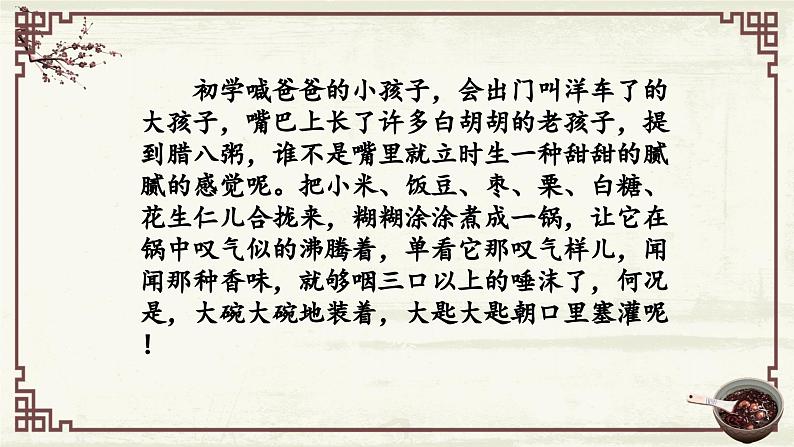 初学喊爸爸的小孩子，会出门叫洋车了的
大孩子，嘴巴上长了许多白胡胡的老孩子，提
到腊八粥，谁不是嘴里就立时生一种甜甜的腻
腻的感觉呢。把小米、饭豆、枣、栗、白糖、
花生仁儿合拢来，糊糊涂涂煮成一锅，让它在
锅中叹气似的沸腾着，单看它那叹气样儿，闻
闻那种香味，就够咽三口以上的唾沫了，何况
是，大碗大碗地装着，大匙大匙朝口里塞灌呢
！